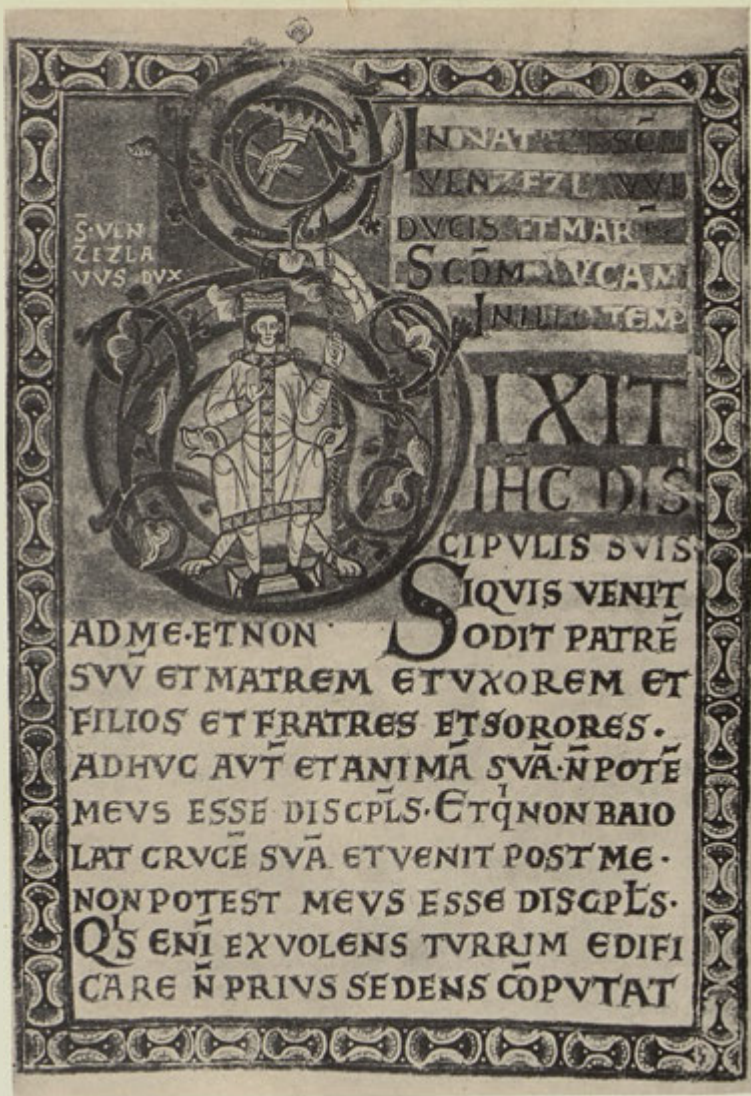 S̄·VEN
ZEZLA
VVS DVX
IN NVAT SC̄
VENZEZL VVI
DVCIS ET MAR
SCD̄M LVCAM
IN ILLO TEMP
IXIT
IH̄C DIS
CIPVLIS SVIS
SIQVIS VENIT
AD ME·ET NON ODIT PATRĒ
SVV̄ ET MATREM ET VXOREM ET
FILIOS ET FRATRES ET SORORES.
ADHVC AVT̄ ET ANIMĀ SVĀ·N̄ POTĒ
MEVS ESSE DISCPL̄S·ET qͥ NON BAIO
LAT CRVCĒ SVĀ ET VENIT POST ME·
NON POTEST MEVS ESSE DISCPL̄S·
QͥS ENĪ EX VOLENS TVRRIM EDIFI
CARE N̄ PRIVS SEDENS CŌPVTAT